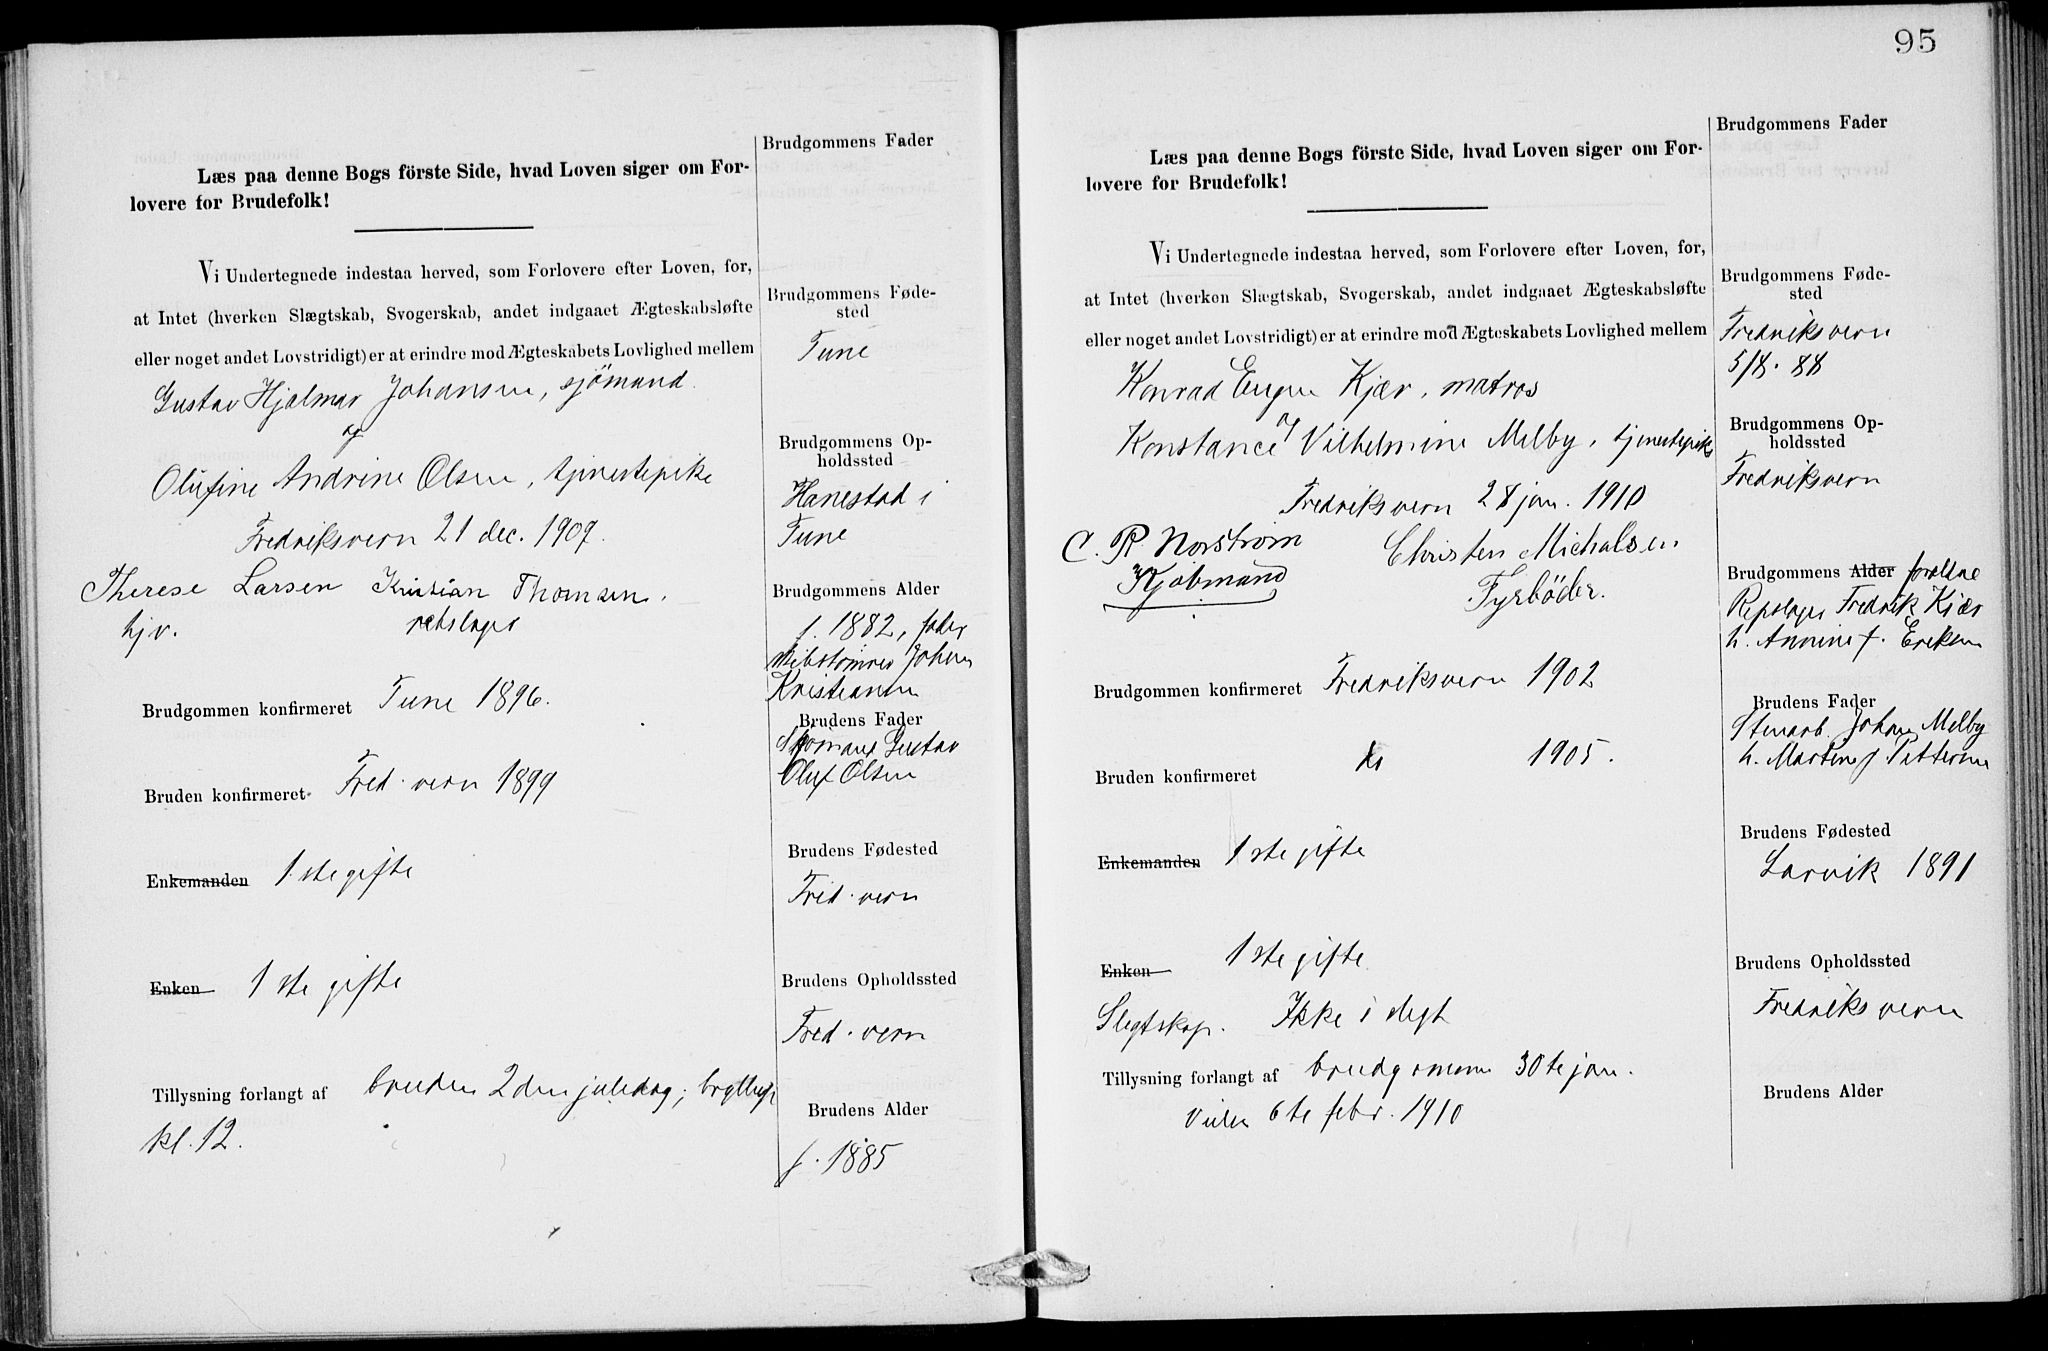 Læs paa denne Bogs förste Side, hvad Loven siger om For-
lovere for Brudefolk!
Vi Undertegnede indestaa herved, som Forlovere efter Loven, for,
at Intet (hverken Slægtskab, Svogerskab, andet indgaaet Ægteskabsløfte
eller noget andet Lovstridigt) er at erindre mod Ægteskabets Lovlighed mellem
Gustav Hjalmar Johansen, sjömand.
og
Olufine Andrine Olsen, tjenestepike
Fredriksvern 21 dec. 1909.
Therese Larsen Kristian Thomsen.
tjv.
Brudgommen konfirmeret Tune 1896.
Bruden konfirmeret Fred.vern 1899
Enkemanden 1ste gifte
Enken 1ste gifte
Tillysning forlangt af bruden 2den juledag; bryllup
kl. 12.
Brudgommens Fader
Brudgommens Føde-
sted
Tune
Brudgommens Op-
holdssted
Hanestad i
Tune
Brudgommens Alder
f. 1882, fader
Johan
Kristiansen
Brudens Fader
Sjömand Gustav
Oluf Olsen
Brudens Fødested
Fred.vern
Brudens Opholdssted
Fred.vern
Brudens Alder
f. 1885
95
Læs paa denne Bogs förste Side, hvad Loven siger om For-
lovere for Brudefolk!
Vi Undertegnede indestaa herved, som Forlovere efter Loven, for,
at Intet (hverken Slægtskab, Svogerskab, andet indgaaet Ægteskabsløfte
eller noget andet Lovstridigt) er at erindre mod Ægteskabets Lovlighed mellem
Konrad Eugen Kjær, matros
og
Konstance Vilhelmine Melby, tjenestepike
Fredriksvern 28 jan. 1910
C. R. Norstrøm Christen Michalsen
Kjøbmand Fyrböder.
Brudgommen konfirmeret Fredriksvern 1902
Bruden konfirmeret do 1905.
Enkemanden 1ste gifte
Enken 1ste gifte
Slegtskap. Ikke i slegt
Tillysning forlangt af brudgommen 30te jan.
Vies 6te febr. 1910
Brudgommens Fader
Brudgommens Føde-
sted
Fredriksvern
5/8. 88
Brudgommens Op-
holdssted
Fredriksvern
Brudgommens Alder foreldre
Repslager Fredrik Kjær
h. Annine f. Eriksen
Brudens Fader
Stenarb. Johan Melby
h. Martine f Pettersen
Brudens Fødested
Larvik 1891
Brudens Opholdssted
Fredriksvern
Brudens Alder